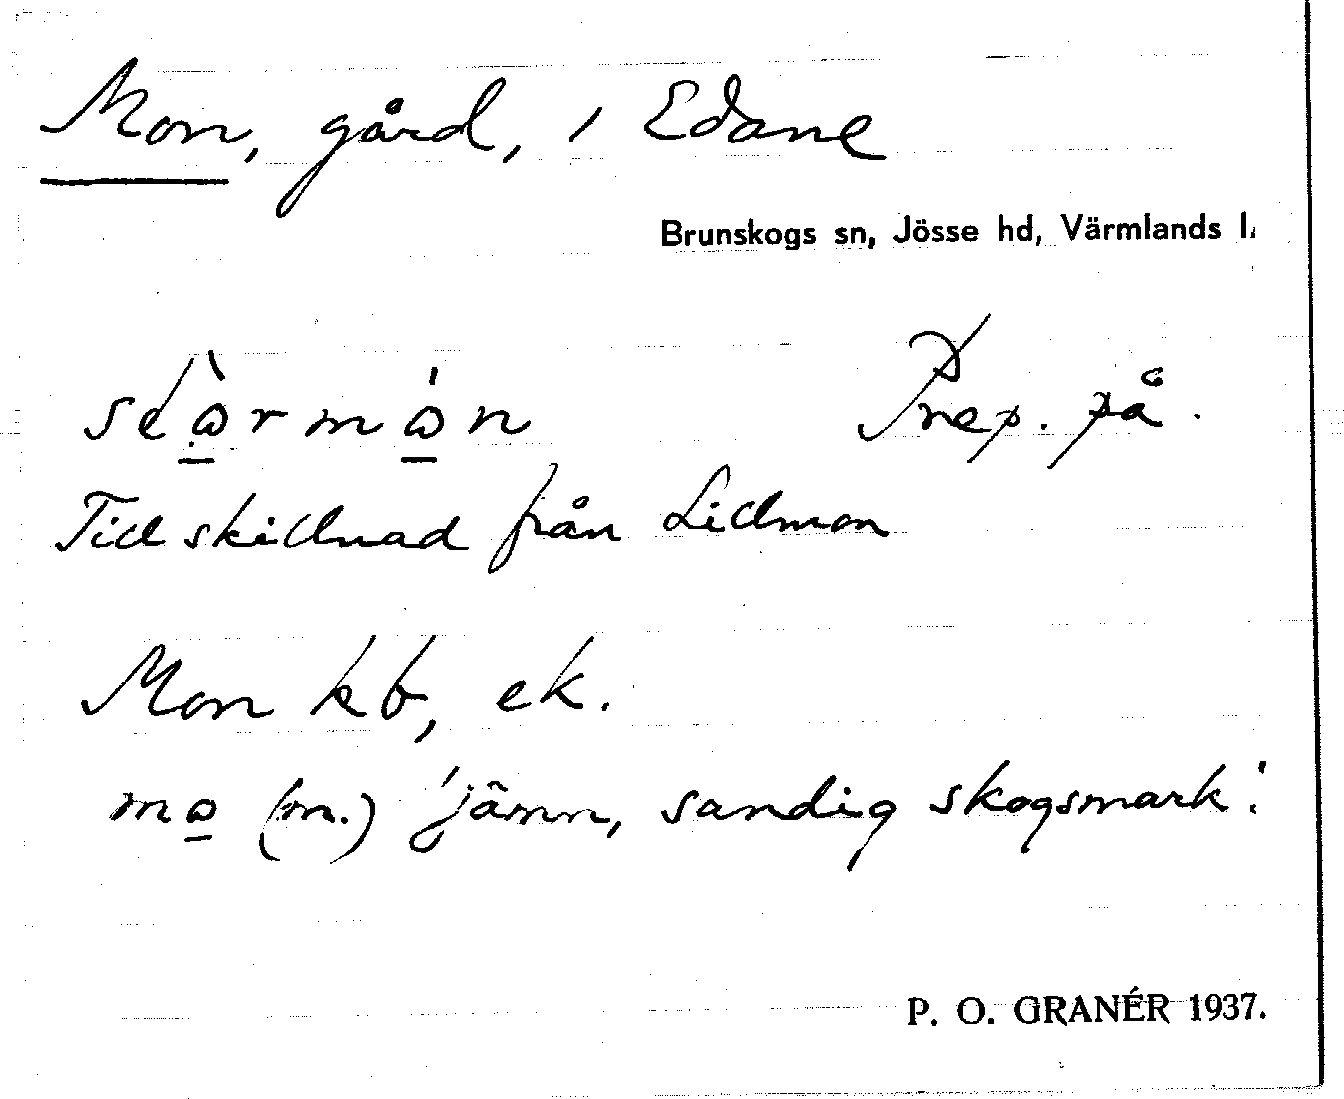 Mon, gård, i Edane
Brunskogs sn, Jösse hd, Värmlands l.
Prep. på.
Till skillnad från Lillmon
Mon kb, ek.
mo (m.) 'jämn, sandig skogsmark'.
P. O. GRANÉR 1937.